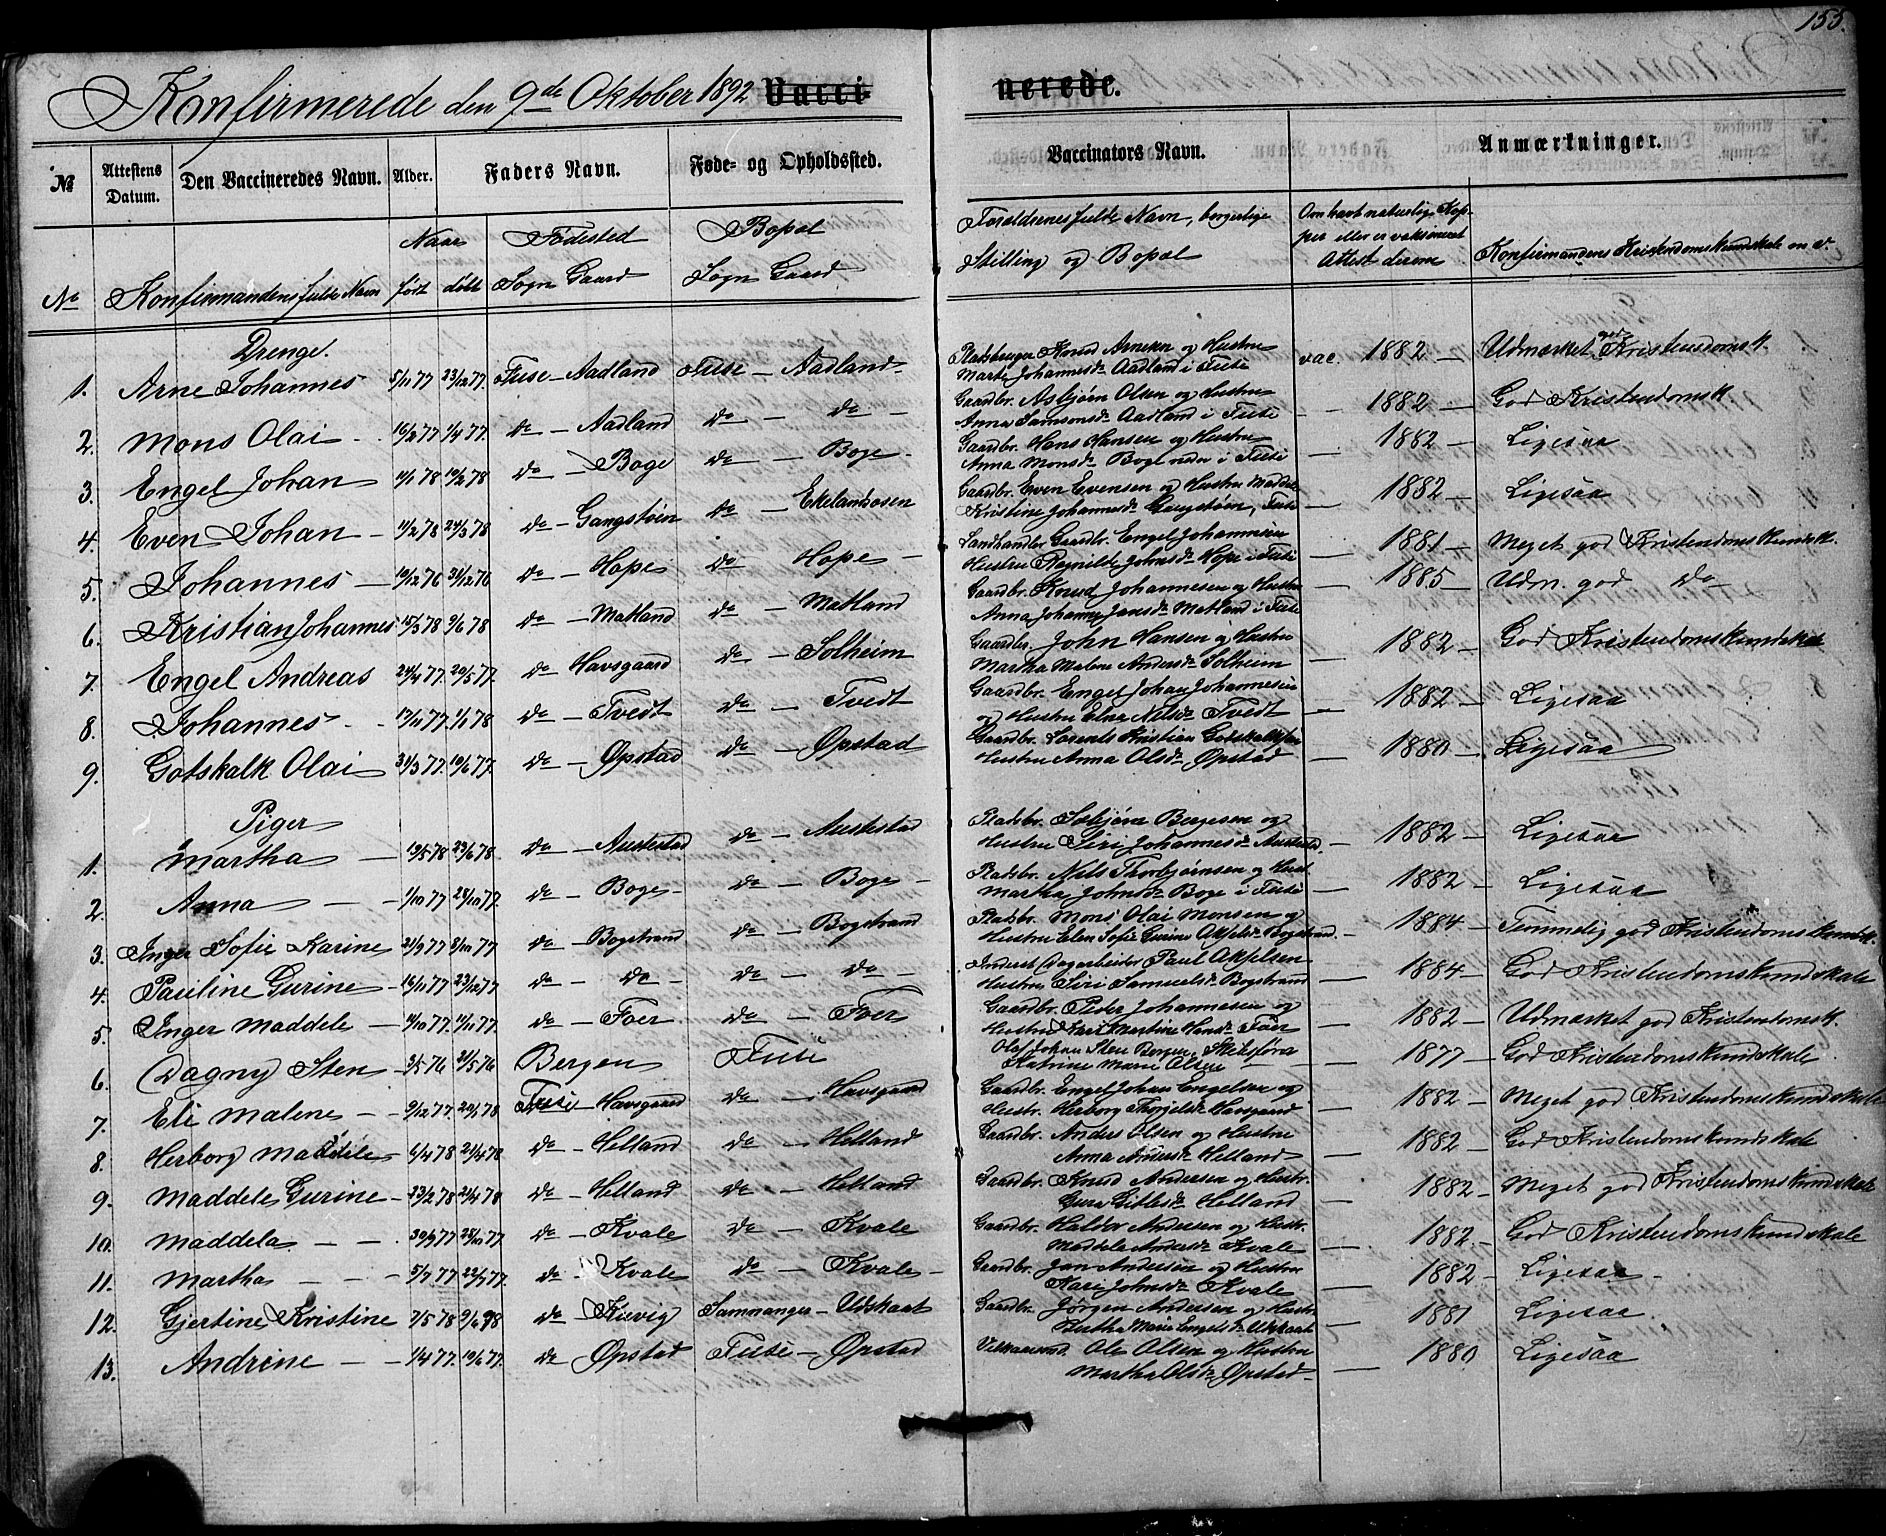 155.
Konfirmerede den 9de Oktober 1892 Vacci- nerede.
№ Attestens Datum. Den Vaccineredes Navn. Alder. Faders Navn. Føde- og Opholdssted. Vaccinators Navn. Anmærkninger.
No Konfirmandens fulde Navn Naar født døbt Fødested Sogn Gaard Bopæl Sogn Gaard Forældrenes fulde Navn, borgerlige Stilling og Bopæl Om havt naturlige Kopper eller er vaksineret Attest derom Konfirmandens Kristendomskundskab m. v.
Drenge.
1. Arne Johannes 5/11 77 23/12 77. Fuse – Aadland Fuse – Aadland Pladsbruger Knud Arnesen og Hustru Marte Johannesdr. Aadland i Fuse vac. 1882 – Udmærket god Kristendomsk.
2. Mons Olai 16/2 77 1/4 77. do – Aadland do – do – Gaardbr. Asbjørn Olsen og Hustru Anna Samsonsdr. Aadland i Fuse – 1882 – God Kristendomsk
3. Engel Johan 4/1 78 10/2 78 do – Boge do – Boge – Gaardbr. Hans Hansen og Hustru Anna Monsdr. Boge nedre i Fuse – 1882 – Ligesaa
4. Even Johan – 11/2 78 24/3 78 do – Gangstøen do – Ekelandsosen Gaardbr. Even Evensen og Hustru Maddele Kristine Johannesdr. Gangstøen, Fuse – 1882 – Ligesaa
5. Johannes – 10/12 76 24/12 76 do – Hope do – Hope – Landhandler Gaardbr. Engel Johannesen Hustru Ragnilde Johnsdr. Hope i Fuse – 1881 – Meget god Kristendomskundsk.
6. Kristian Johannes 15/3 78 9/6 78 do – Matland do – Matland Gaardbr. Knud Johannesen og Hustru Anna Johanne Jansdr. Matland i Fuse – 1885 – Udm. god do
7. Engel Andreas 24/4 77. 20/5 77. do – Havsgaard do – Solheim Gaardbr. John Hansen og Hustru Martha Malene Andersdr. Solheim – 1882 – God Kristendomskundskab
8. Johannes – 17/11 77 1/1 78 do – Tvedt do – Tvedt Gaardbr. Engel Johan Johannesen og Hustru Elna Nelsdr. Tvedt – 1882 – Ligesaa
9. Gotskalk Olai 31/3 77. 10/6 77. do – Øpstad do – Øpstad Gaardbr. Lorents Kristian Gotskalksen Hustru Anna Olsdr. Øpstad – 1880 – Ligesaa
Piger
1. Martha – 19/5 78 23/6 78. do – Austestad do – Austestad Pladsbr. Sæbjørn Bergesen og Hustru Siri Johannesdr. Austestad. – 1882 – Ligesaa
2. Anna – – 1/10 77 28/10 77. do – Boge – do – Boge – Pladsbr. Nils Thorbjørnsen og Hust. Martha Johnsdr. Boge i Fuse – 1882 – Ligesaa
3. Inger Sofie Karine 21/9 77 8/10 77 do – Bogstrand do – Bogstrand Pladsbr. Mons Olai Monsen og Hustru Elen Sofie Gurine Akselsdr. Bogstrand. – 1884 – Temmelig god Kristendomskundsk.
4. Pauline Gurine – 16/11 77 23/12 77 do – do – do – do – Inderst Dagarbeider Paul Akselsen Hustru Siri Samuelsdr. Bogstrand – 1884 – God Kristendomskundskab
5. Inger Maddele – 14/10 77. 11/11 77. do – Foer do – Foer Gaardbr. Peder Johannesen og Hustru Kari Martine Hansdr. Foer – 1882 – Udmærket god Kristendomsk.
6. Dagny Sten 3/5 76 21/5 76 Bergen Fuse Olaf Johan Sten Bergen, Katrine Marie Olsen – 1877 – God Kristendomskundskab
7. Eli Malene – – 9/12 77. 20/1 78 Fuse – Havsgaard do – Havsgaard Gaardbr. Engel Johan Engelsen og Hustr. Herborg Thorjelsdr. Havsgaard – 1882 – Meget god Kristendomskundskab
8. Herborg Maddele – 6/4 78 21/4 78 do – Helland do – Helland Gaardbr. Anders Olsen og Hustru Anna Andersdr. Helland – 1882 – God Kristendomskundskab
9. Maddele Gurine – 23/2 78 21/4 78 do – Helland do – Helland Gaardbr. Knud Andersen og Hustr. Helland – 1882 – Meget god Kristendomskundskab
10. Maddela – – 30/9 77 28/10 77. do – Kvale do – Kvale Gaardbr. Haldor Andersen og Hustr. Maddela Andersdr. Kvale – 1882 – God Kristendomskundskab
11. Martha – – – 5/7 77 22/7 77. do – Kvale do – Kvale – Gaardbr. Jan Andersen og Hustru Kari Johnsdr. Kvale – 1882 – Ligesaa –
12. Gjertine Kristine 7/5 78 9/6 78 do – Kilvig Samnanger – Udskaat Gaardbr. Jørgen Andersen og Hustru Bertha Marie Engelsdr. Udskaat – 1881 Ligesaa
13. Andrine – – 1/4 77. 10/6 77. do – Øpstad Fuse – Øpstad Vilkaarsmd. Ole Olsen og Hustru Martha Olsdr. Øpstad – 1880 Ligesaa